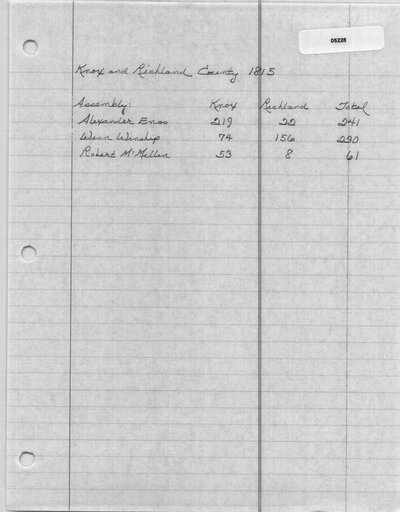 05228
Knox and Richland County 1815
Assembly: Knox Richland Total
Alexander Enos 219 22 241
Wenn Winship 74 156 230
Robert McMillen 53 8 61